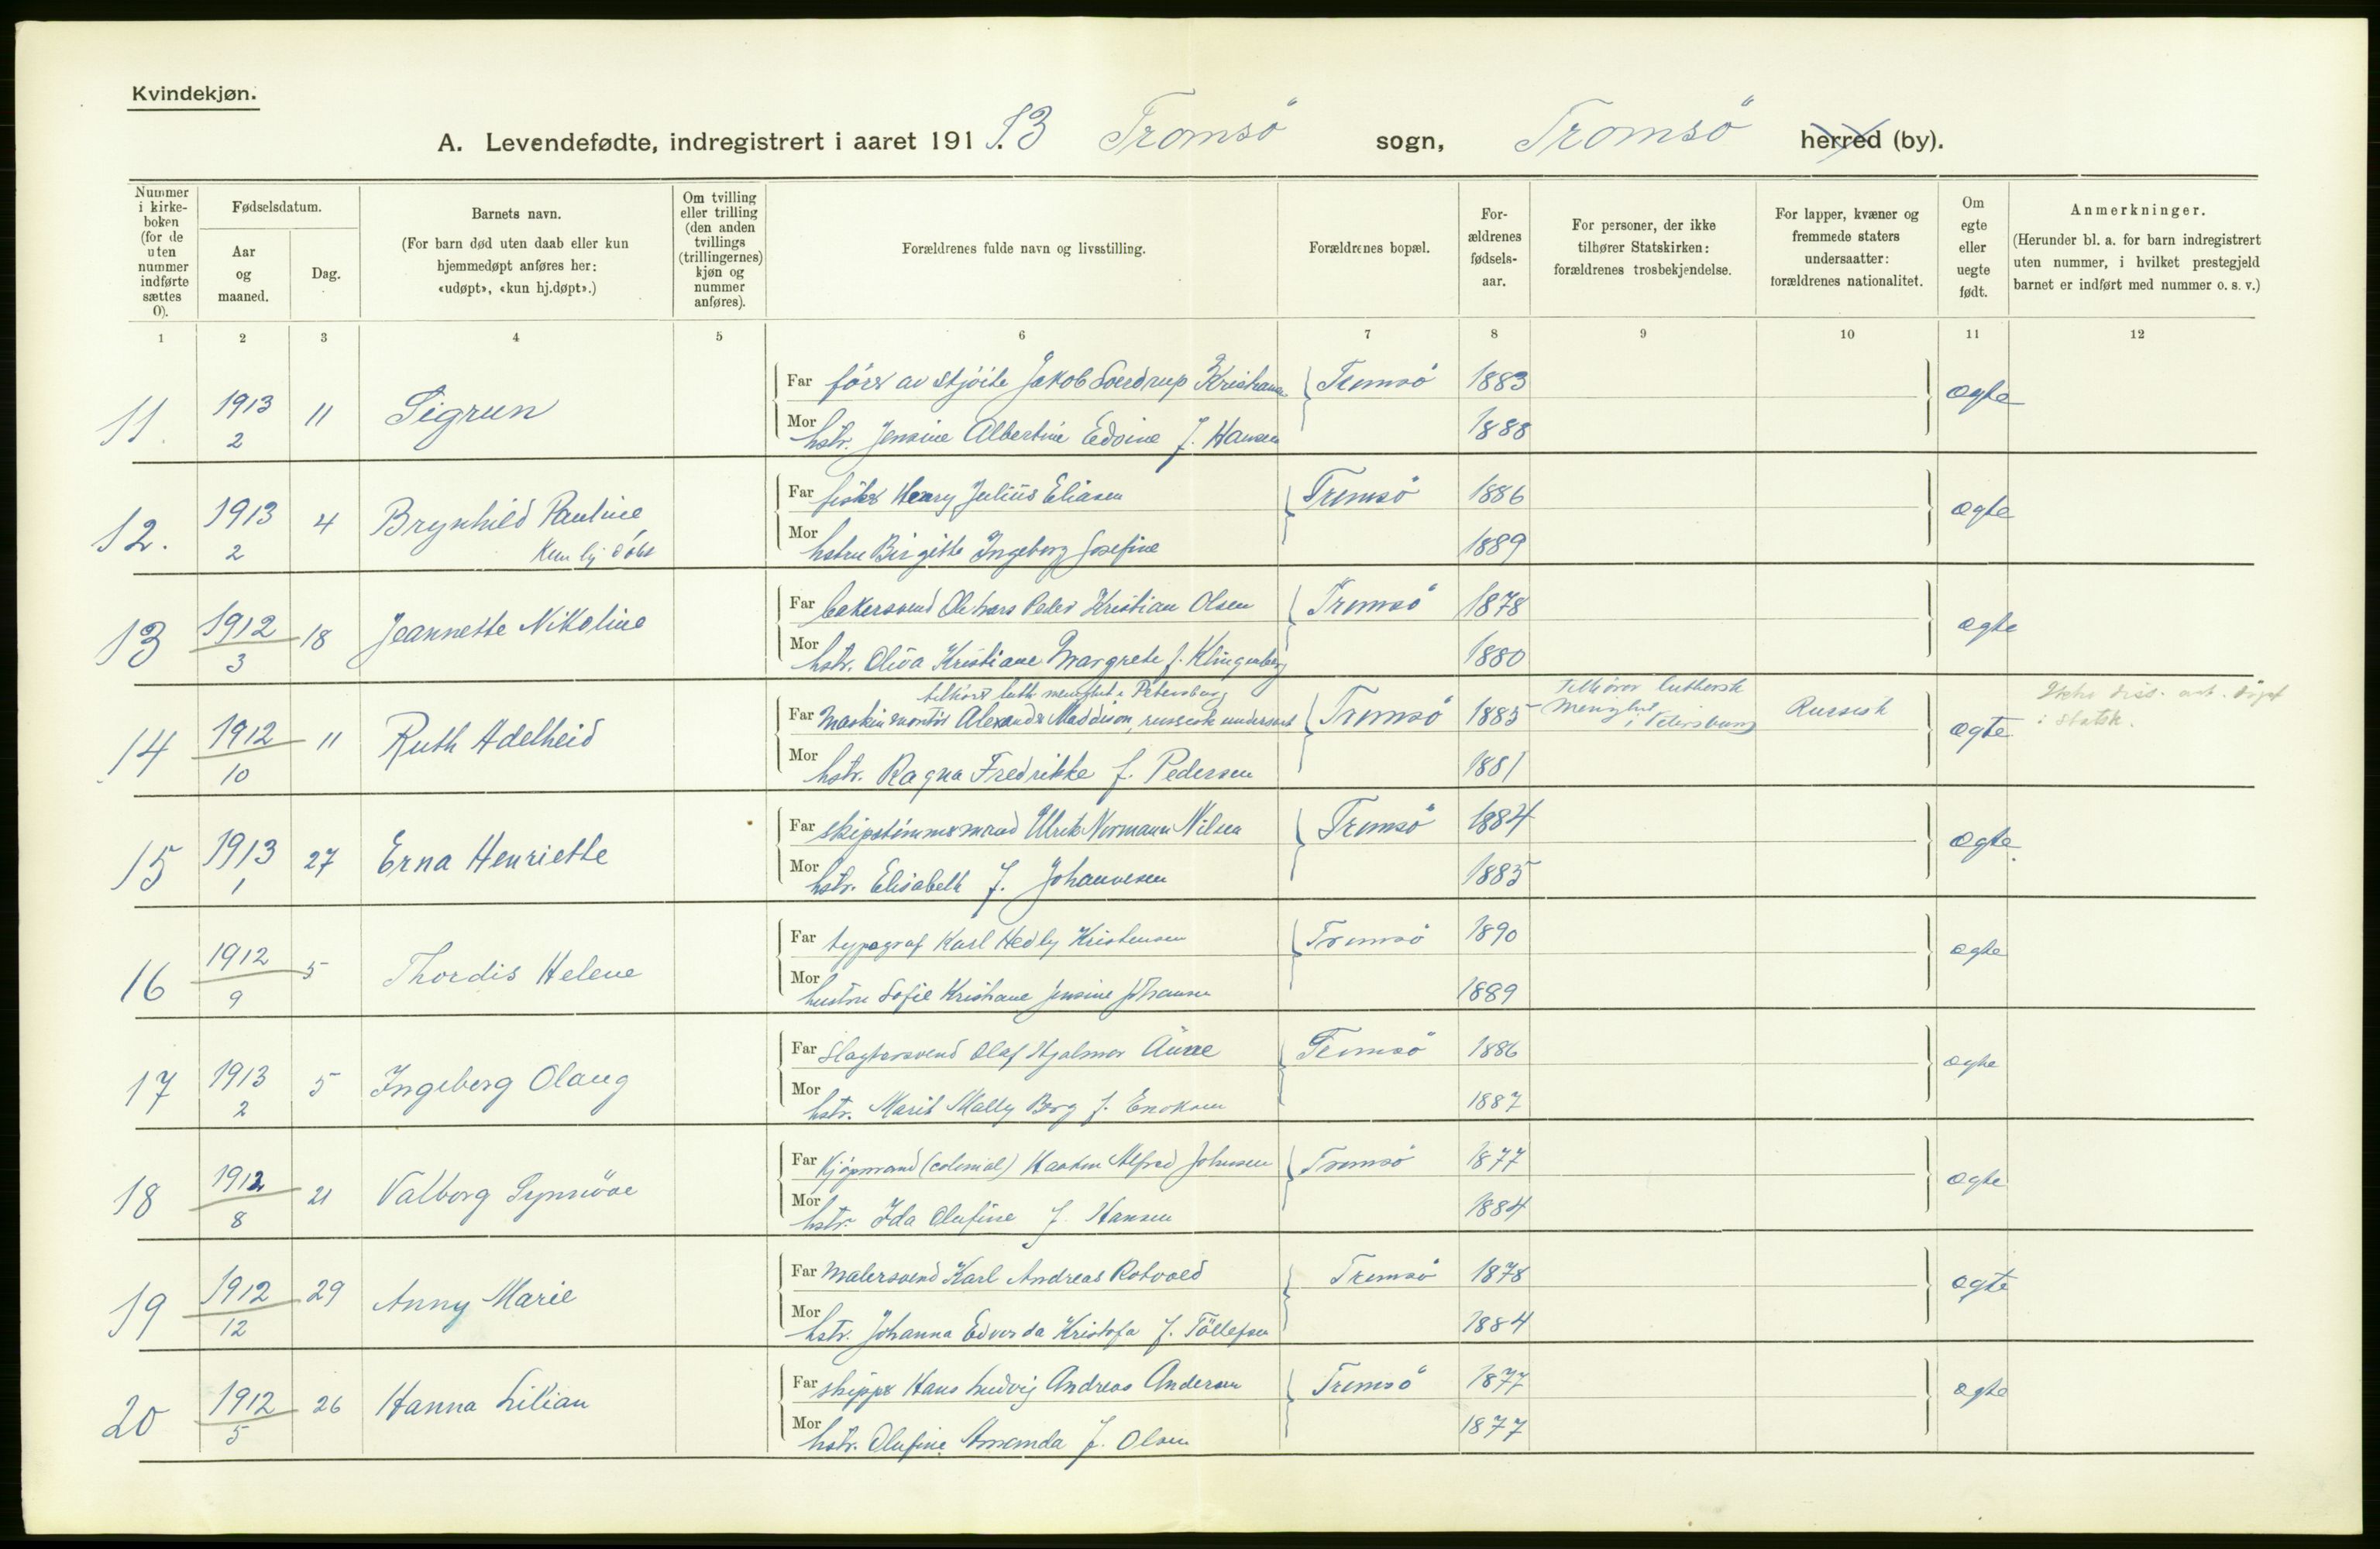 Kvindekjøn.
A. Levendefødte, indregistrert i aaret 191 13. Tromsö sogn, Tromsö herred (by).
Nummer i kirkeboken (for de uten nummer indførte sættes 0).
Fødselsdatum.
Aar og maaned.
Dag.
Barnets navn.
(For barn død uten daab eller kun hjemmedøpt anføres her: «udøpt», «kun hj.døpt».)
Om tvilling eller trilling (den anden tvillings (trillingernes) kjøn og nummer anføres).
Forældrenes fulde navn og livsstilling.
Forældrenes bopæl.
Forældrenes fødselsaar.
For personer, der ikke tilhører Statskirken: forældrenes trosbekjendelse.
For lapper, kvæner og fremmede staters undersaatter: forældrenes nationalitet.
Om egte eller uegte født.
Anmerkninger.
(Herunder bl. a. for barn indregistrert uten nummer, i hvilket prestegjeld barnet er indført med nummer o. s. v.)
1 2 3 4 5 6 7 8 9 10 11 12
11. 1913 2 11 Sigrun
Far förer av skjöite Jakob Sverdrup Kristiansen Tromsö 1883 ægte
Mor hstr. Jensine Albertine Edvine f. Hansen 1888
12. 1913 2 4 Brynhild Pauline
Kun hj döbt
Far fisker Henry Julius Eliasen Tromsö 1886 ægte
Mor hstru Birgitte Ingeborg Josefine 1889
13 1912 3 18 Jeannette Nikoline
Far bakersvend Ole Lars Peder Kristian Olsen Tromsö 1878 ægte
Mor hstr. Oliva Kristiane Margrete f. Klingenberg 1880
14 1912 10 11 Ruth Adelheid
tilhörer luth. menighet i Petersburg
Far Maskinmontör Alexander Maddison, russisk undersaat Tromsö 1885 Tilhörer luthersk Menighet i Petersburg Russisk ægte
Mor hstr. Ragna Fredrikke f. Pedersen 1881
i statsk.
15 1913 1 27 Erna Henriette
Far skipstömmermand Ulrik Normann Nilsen Tromsö 1884 ægte
Mor hstr. Elisabeth f. Johannesen 1885
16 1912 9 5 Thordis Helene
Far typograf Karl Hedly Kristensen Tromsö 1890 ægte
Mor hustru Sofie Kristiane Jensine Johansen 1889
17 1913 2 5 Ingeborg Olaug
Far Slagtersvend Olaf Hjalmar Aune Tromsö 1886 ægte
Mor hstr. Marit Mally Borg f. Enoksen 1887
18 1912 8 21 Valborg Synnöve
Far Kjöpmand (colonial) Haakon Alfred Johnsen Tromsö 1877 ægte
Mor hstr. Ida Olufine f. Hansen 1884
19 1912 12 29 Anny Marie
Far Malersvend Karl Andreas Rotvold Tromsö 1878 ægte
Mor hstr. Johanna Edvarda Kristofa f. Töllefsen 1884
20 1912 5 26 Hanna Lilian
Far skipper Hans Ludvig Andreas Andersen Tromsö 1877 ægte
Mor hstr. Olufine Amanda f. Olsen 1877